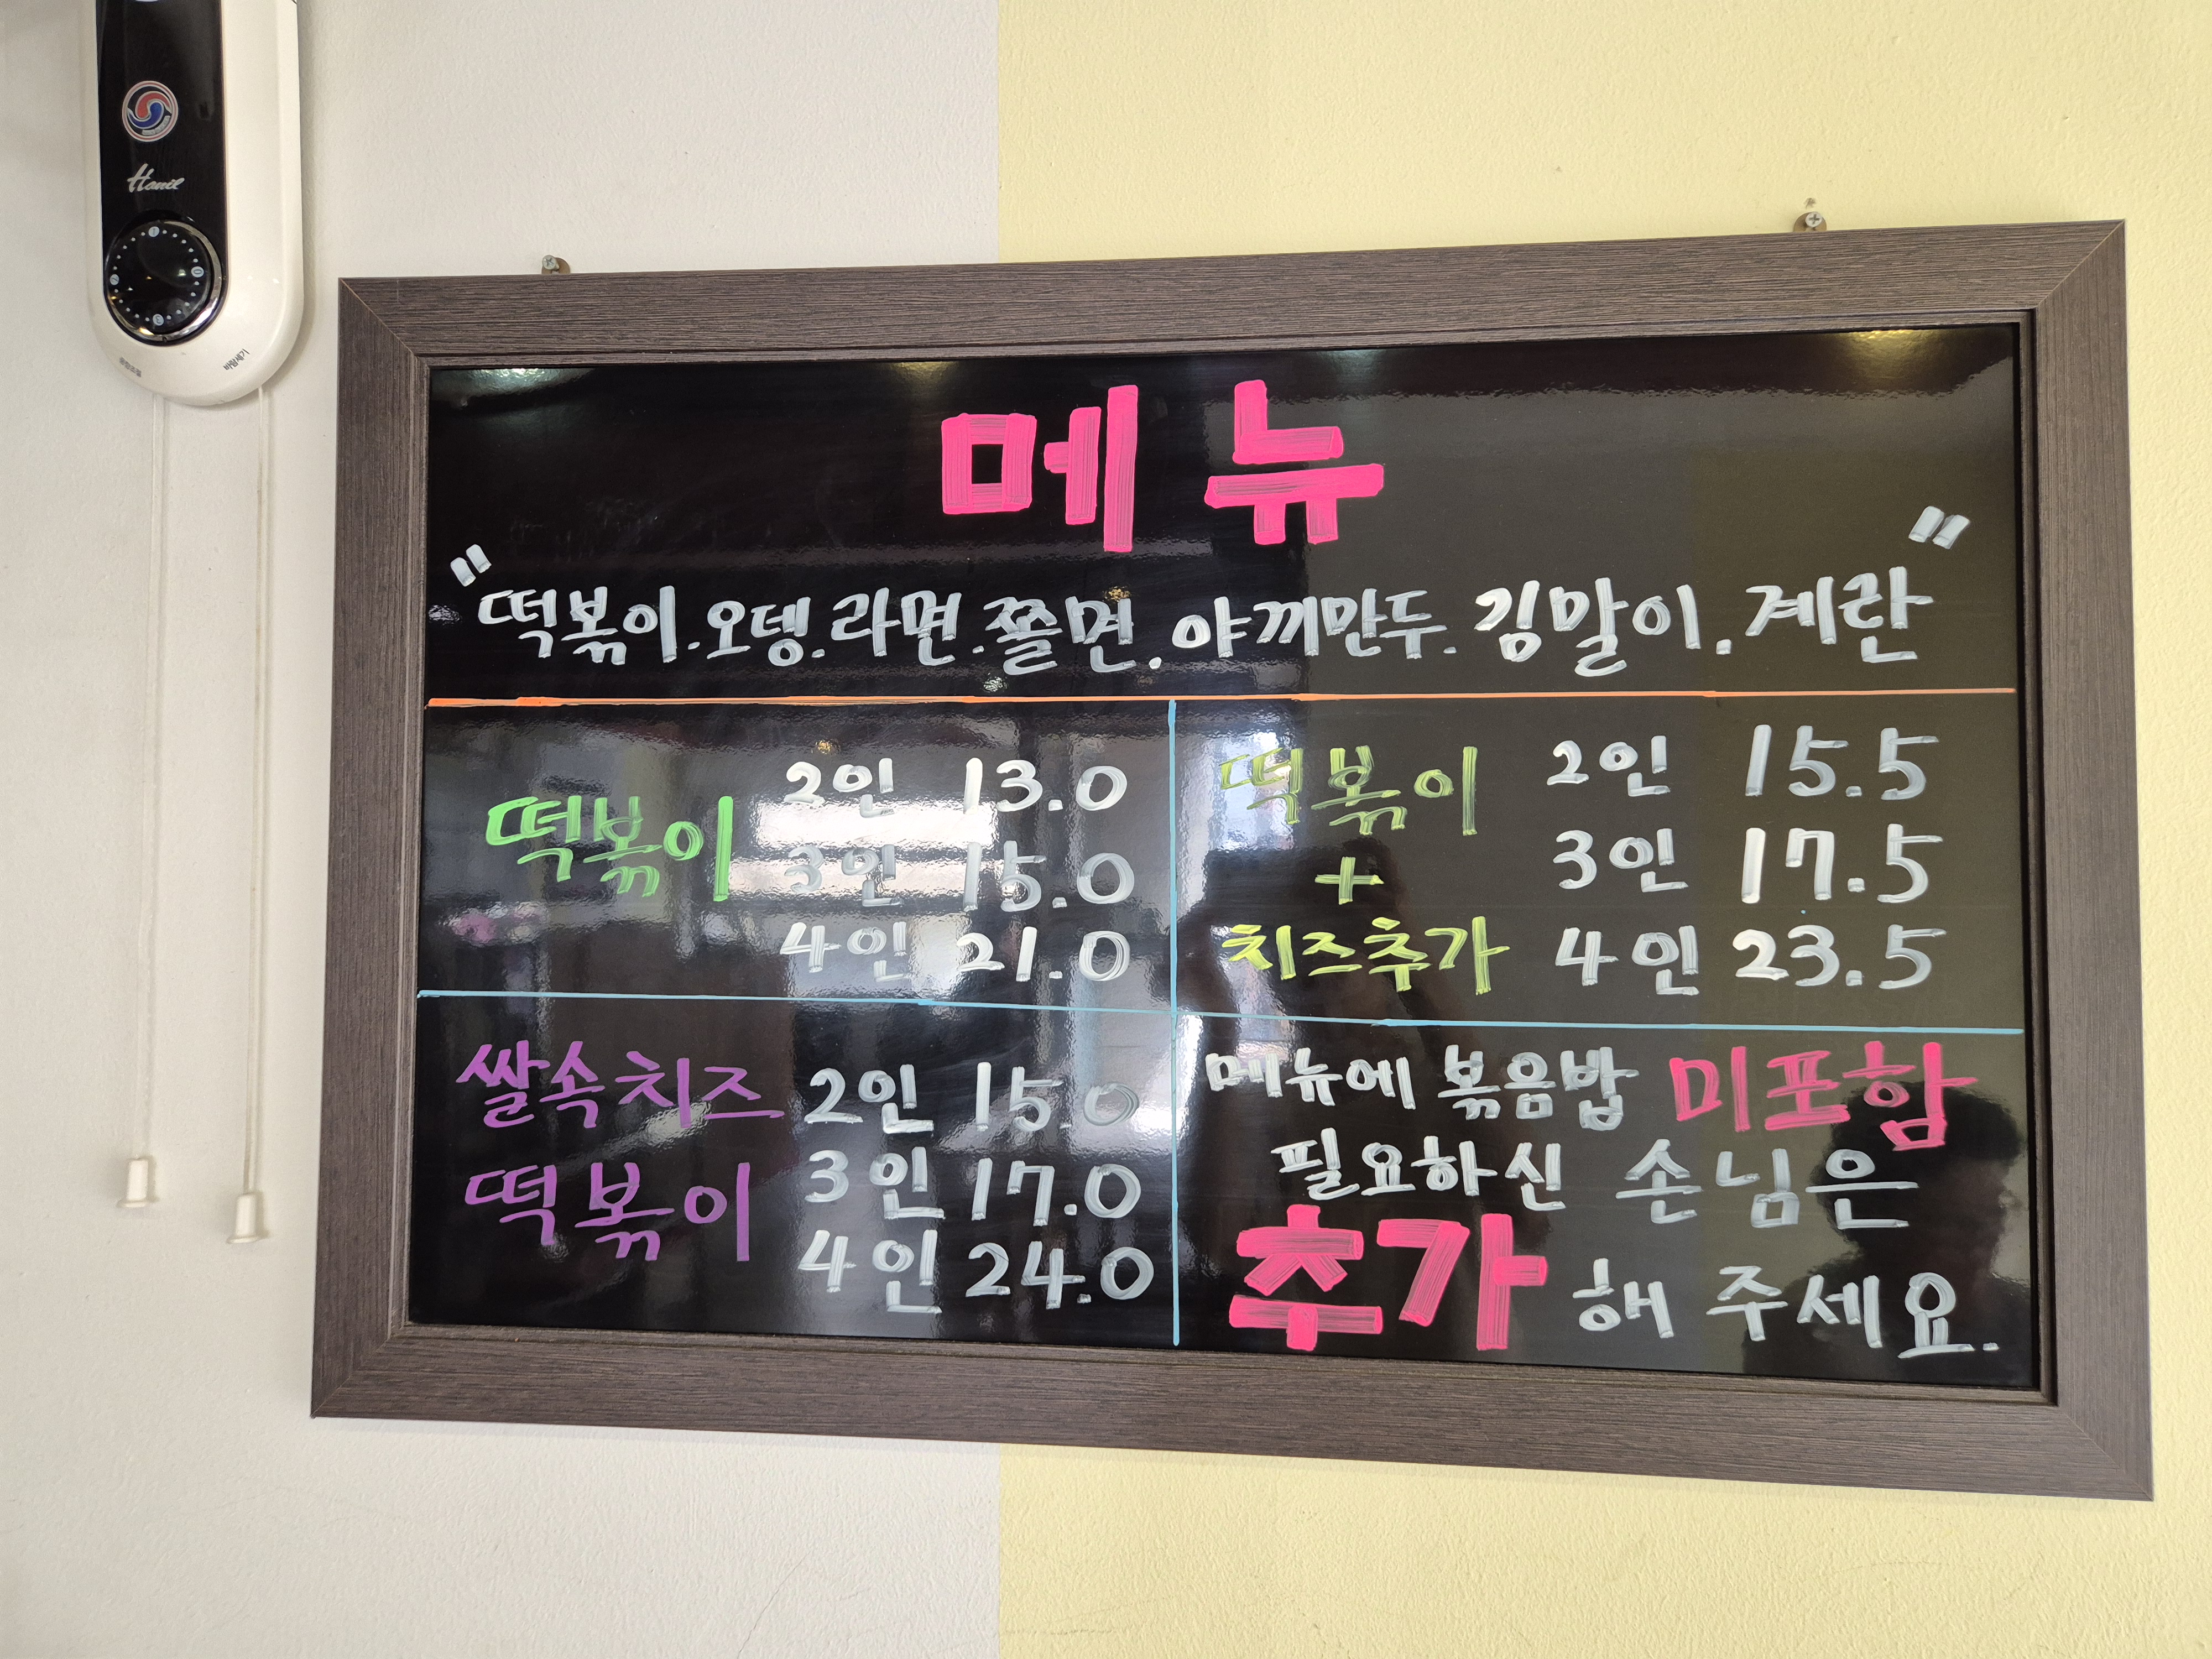 Hanil
메뉴
"떡볶이.오뎅.라면.쫄면.야끼만두.김말이.계란"
떡볶이
2인 13.0
3인 15.0
4인 21.0
떡볶이
+
치즈추가
2인 15.5
3인 17.5
4인 23.5
쌀속치즈
떡볶이
2인 15.0
3인 17.0
4인 24.0
메뉴에 볶음밥 미포함
필요하신 손님은
추가 해 주세요.